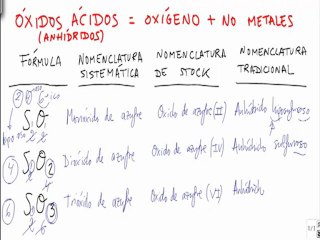 ÓXIDOS ÁCIDOS = OXÍGENO + NO METALES
(ANHÍDRIDOS)
FÓRMULA NOMENCLATURA SISTEMÁTICA NOMENCLATURA DE STOCK NOMENCLATURA TRADICIONAL
SO Monóxido de azufre Oxido de azufre (II) Anhídrido hiposulfuroso
④ SO2 Dióxido de azufre Oxido de azufre (IV) Anhídrido sulfuroso
⑥ SO3 Trióxido de azufre Oxido de azufre (VI) Anhídrido